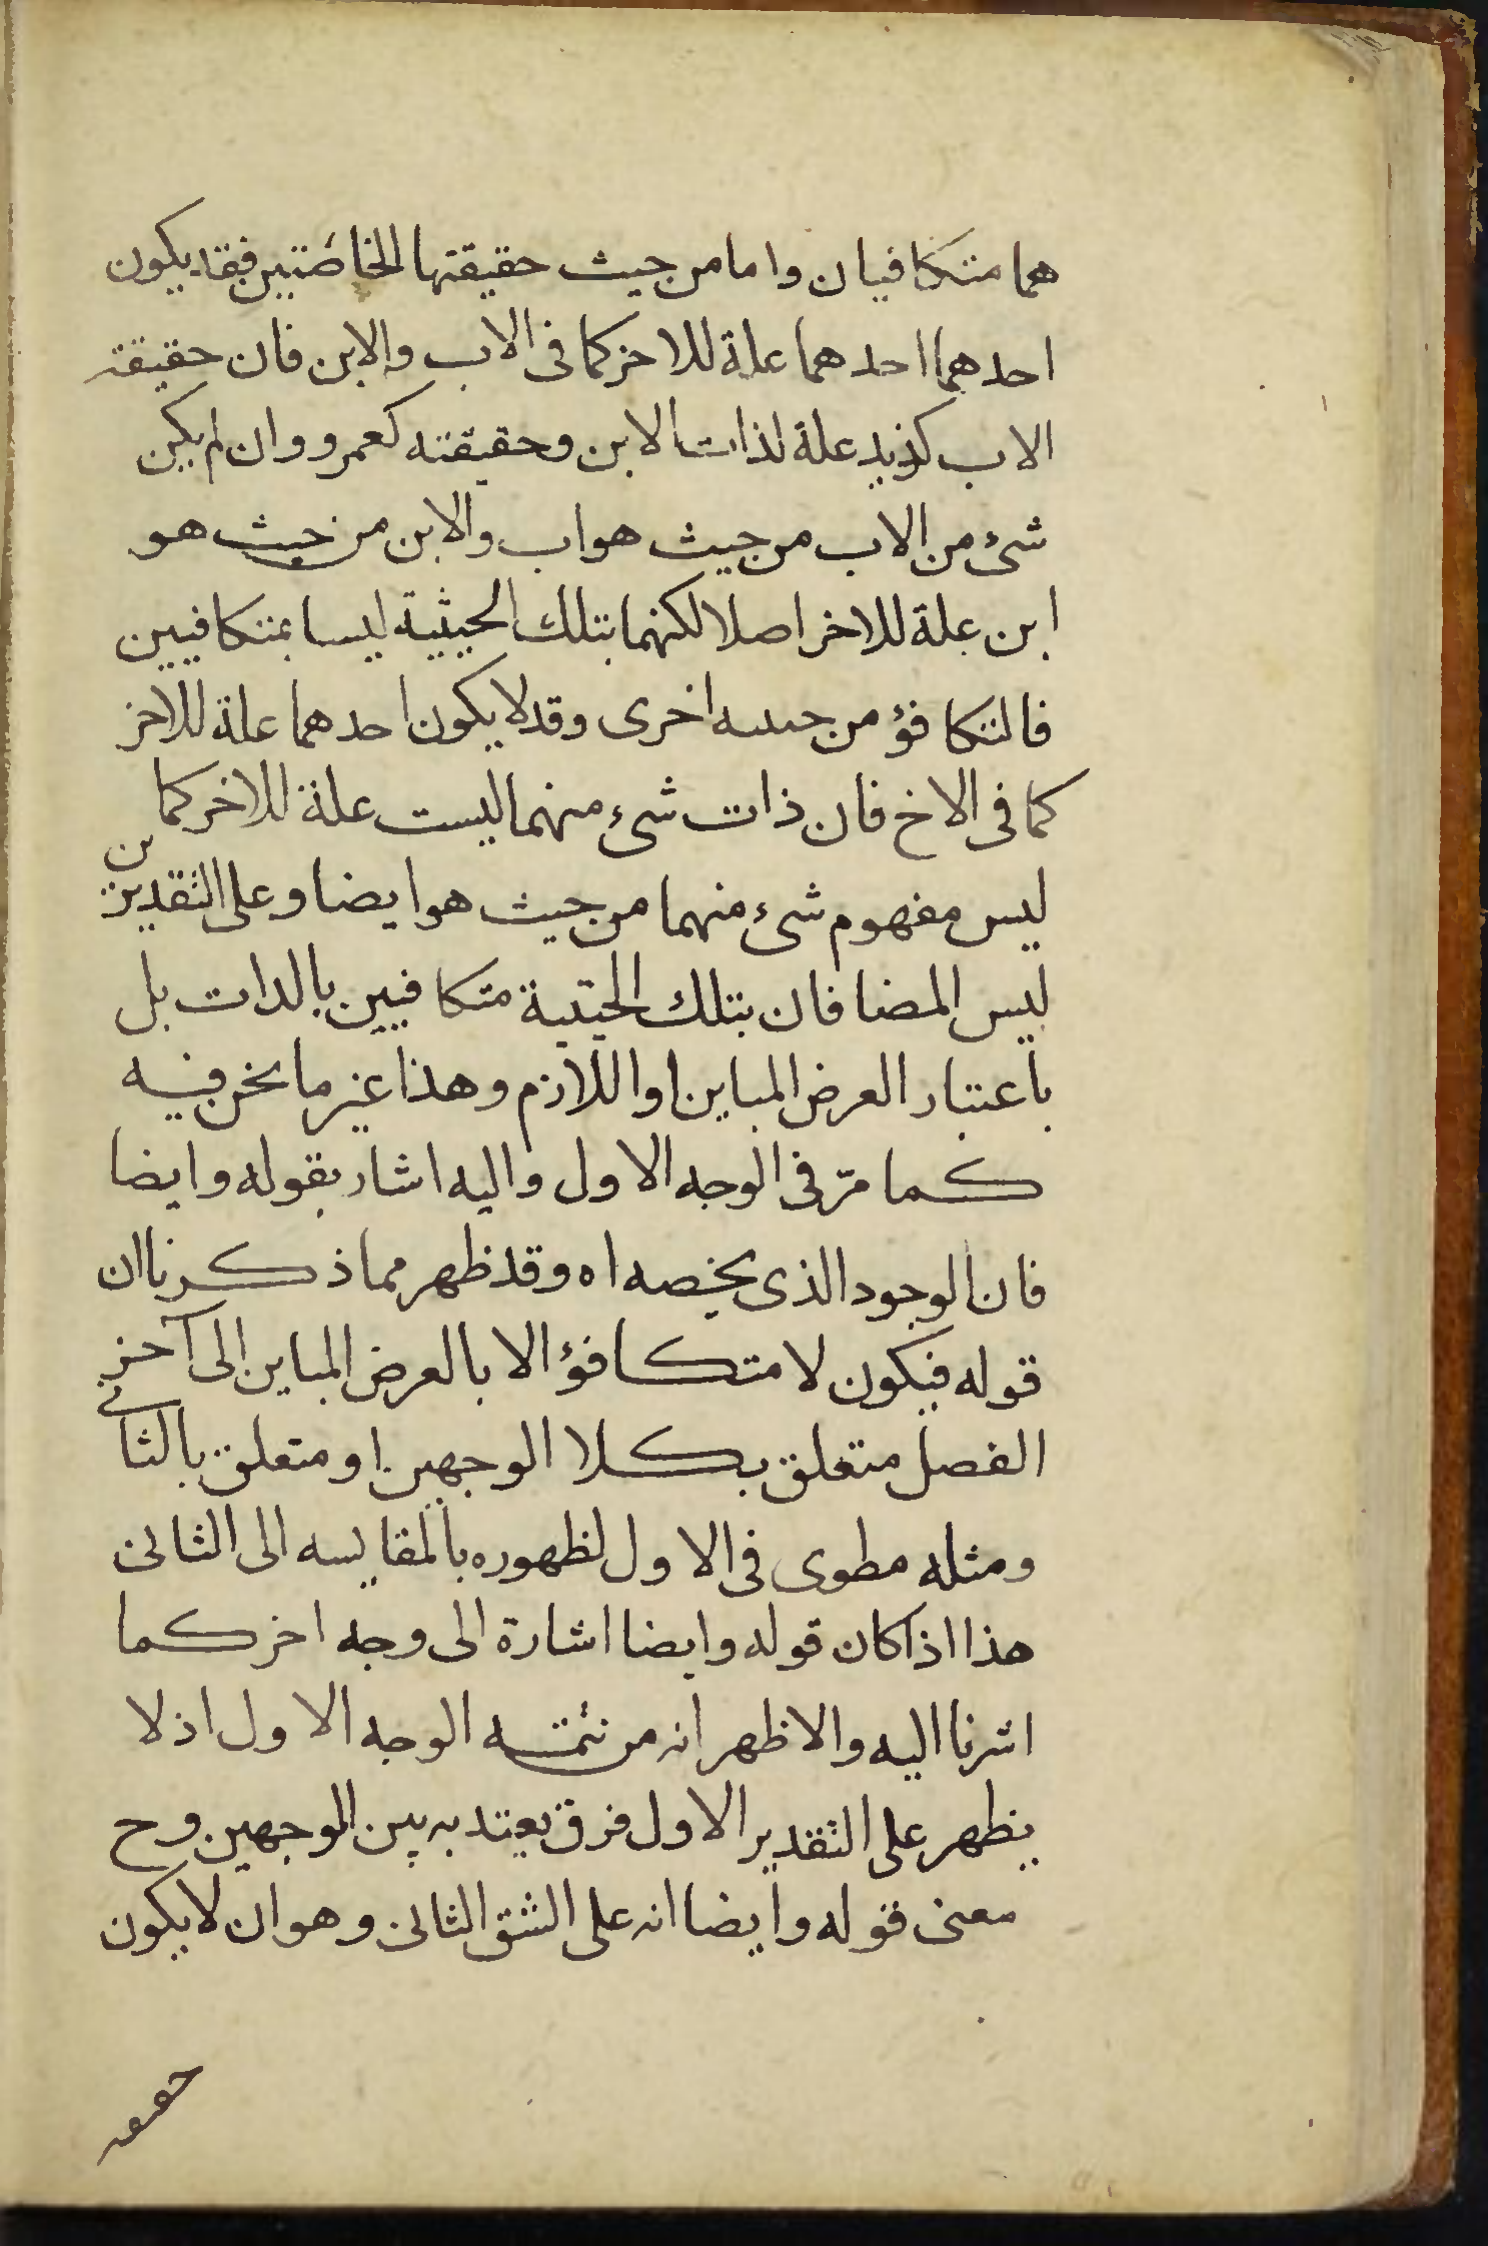 هما متكافيان واما من حيث حقيقتها الخاصتين فقد يكون
احدهما احدهما علة للاخر كما فى الاب والابن فان حقيقة
الاب كزيد علة لذات الابن وحقيقته كعمرو وان لم يكن
شئ من الاب من حيث هو اب والابن من حيث هو
ابن علة للاخر اصلا لكنهما بتلك الحيثية ليسا بمتكافيين
فالتكافؤ من حيثية اخرى وقد لا يكون احدهما علة للاخر
كما فى الاخ فان ذات شىء منهما ليست علة للاخر كما
ليس مفهوم شىء منهما من حيث هو ايضا وعلى التقديرين
ليس المضافان بتلك الحيثية متكافيين بالذات بل
باعتبار العرض المباين او اللازم وهذا غير ما نحن فيه
كما مرّ فى الوجه الاول واليه اشار بقوله وايضا
فان الوجود الذى يخصه اه وقد ظهر مما ذكرنا ان
قوله فيكون لا متكافؤ الا بالعرض المباين الى آخر
الفصل متعلق بكلا الوجهين او متعلق بالثانى
ومثله مطوى فى الاول لظهوره بالمقايسه الى الثانى
هذا اذا كان قوله وايضا اشارة الى وجه اخر كما
اشرنا اليه والاظهر انه من تتمته الوجه الاول اذ لا
يظهر على التقدير الاول فرق يعتد به بين الوجهين وح
معنى قوله وايضا انه على الشق الثانى وهو ان لا يكون
حقيقة